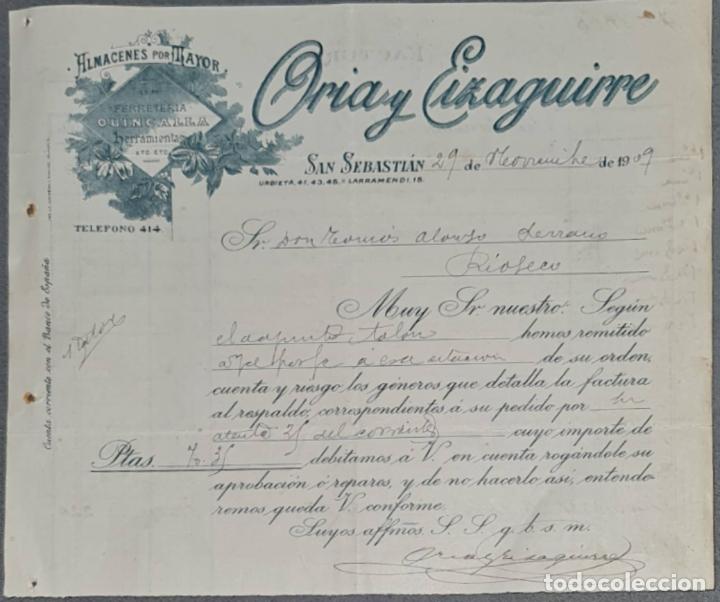 ALMACENES POR MAYOR
DE
FERRETERIA
QUINCALLA
herramientas
ETC. ETC.
TELEFONO 414
Oria y Eizaguirre
SAN SEBASTIÁN 29 de Noviembre de 1909
URBIETA, 41, 43, 45. - LARRAMENDI, 15.
Sr. Don Tomás Alonso Serrano
Rioseco
Cuenta corriente con el Banco de España
Muy Sr. nuestro: Según
el adjunto talon hemos remitido
á esa estación de su orden,
cuenta y riesgo los géneros que detalla la factura
al respaldo, correspondientes á su pedido por su
atenta 25 del corriente cuyo importe de
Ptas. debitamos á V. en cuenta rogándole su
aprobación ó reparos, y de no hacerlo así, entende-
remos queda V. conforme.
Suyos affmos. S. S. q. b. s. m.
Oria y Eizaguirre
todocoleccion.net